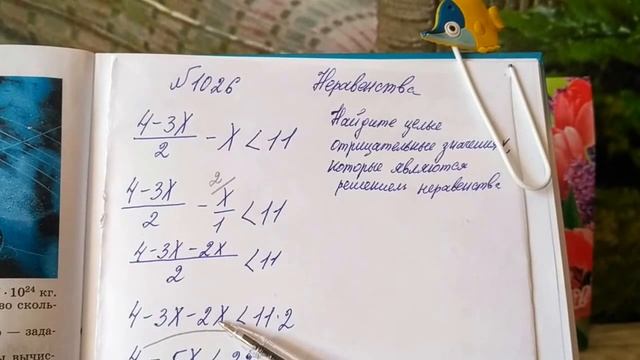 №1026
Неравенства
(4-3x)/2 - x < 11
Найдите целые
отрицательные значения x,
которые являются
решением неравенства
2
(4-3x)/2 - x/1 < 11
(4-3x-2x)/2 < 11
4-3x-2x < 11·2
· 10²⁴ кг.
во сколь-
— зада-
вычис-